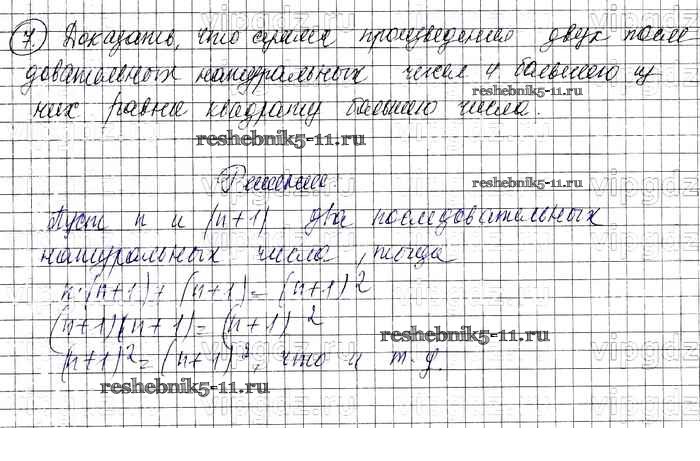 7. Доказать, что сумма произведения двух после
довательных натуральных чисел и большего из
них равна квадрату большего числа.
reshebnik5-11.ru
reshebnik5-11.ru
Решение
reshebnik5-11.ru
Пусть n и (n+1) два последовательных
натуральных числа, тогда
n·(n+1)+(n+1)=(n+1)²
(n+1)(n+1)=(n+1)²
reshebnik5-11.ru
(n+1)²=(n+1)², что и т.д.
reshebnik5-11.ru
vipgdz